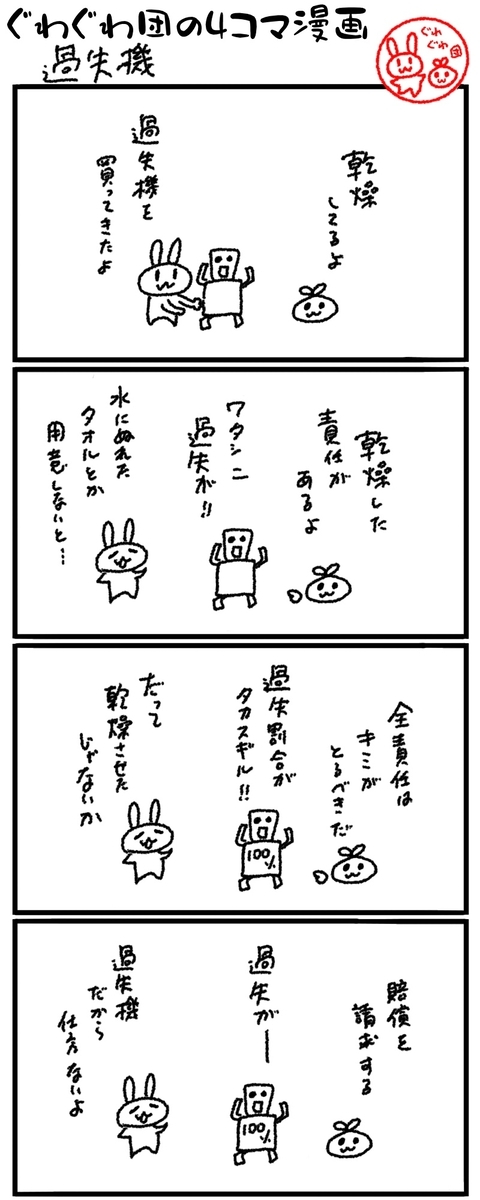 ぐわぐわ団の4コマ漫画
過失機
ぐわ
ぐわ
団
乾燥
してるよ
過失機を
買ってきたよ
乾燥した
責任が
あるよ
ワタシニ
過失が!!
水にぬれた
タオルとか
用意しないと…
全責任は
キミが
とるべきだ
過失割合が
タカスギル!!
100%
だって
乾燥させた
じゃないか
賠償を
請求する
過失がー
100%
過失機
だから
仕方ないよ